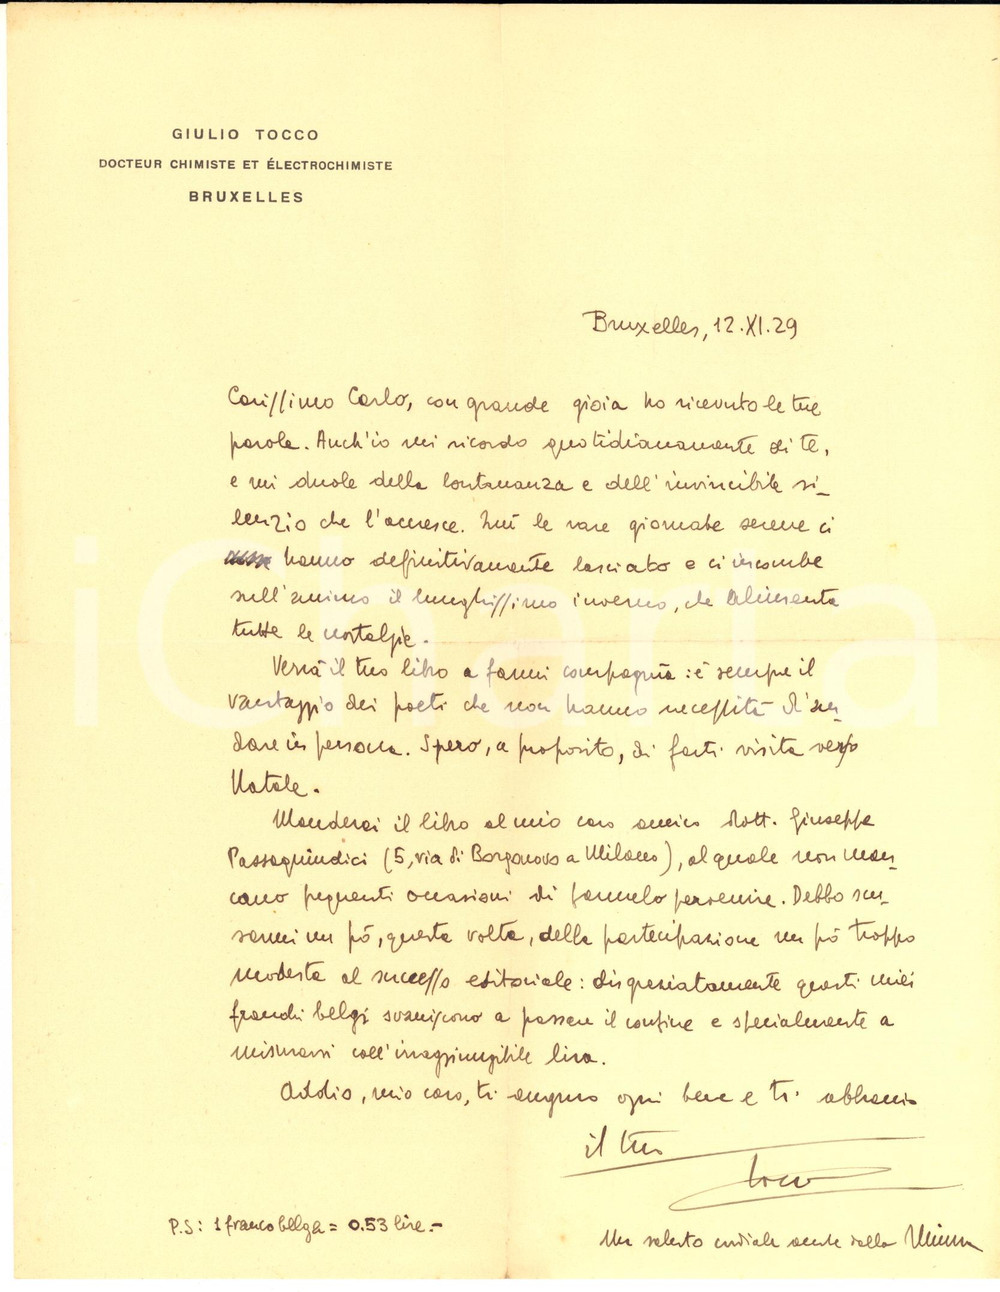 GIULIO TOCCO
DOCTEUR CHIMISTE ET ÉLECTROCHIMISTE
BRUXELLES
Bruxelles, 12.XI.29
Carissimo Carlo, con grande gioia ho ricevuto le tue
parole. Anch'io mi ricordo quotidianamente di te,
e mi duole della lontananza e dell'invincibile si-
lenzio che l'accresce. Qui le rare giornate serene ci
hanno definitivamente lasciato e ci incombe
sull'animo il lunghissimo inverno, che alimenta
tutte le nostalgie.
Verrà il tuo libro a farmi compagnia: è sempre il
vantaggio dei poeti che non hanno necessità d'an-
dare in persona. Spero, a proposito, di farti visita verso
Natale.
Manderai il libro al mio caro amico Dott. Giuseppe
Passaquindici (5, via di Borgonovo a Milano), al quale non man-
cano frequenti occasioni di farmelo pervenire. Debbo scu-
sarmi un pò, questa volta, della partecipazione un pò troppo
modesta al successo editoriale: disgraziatamente questi miei
franchi belgi svaniscono a passare il confine e specialmente a
misurarsi coll'irraggiungibile lira.
Addio, mio caro, ti auguro ogni bene e ti abbraccio
il tuo
Tocco
P.S: 1 franco belga = 0.53 lire.-
Un saluto cordiale anche dalla
iCharta